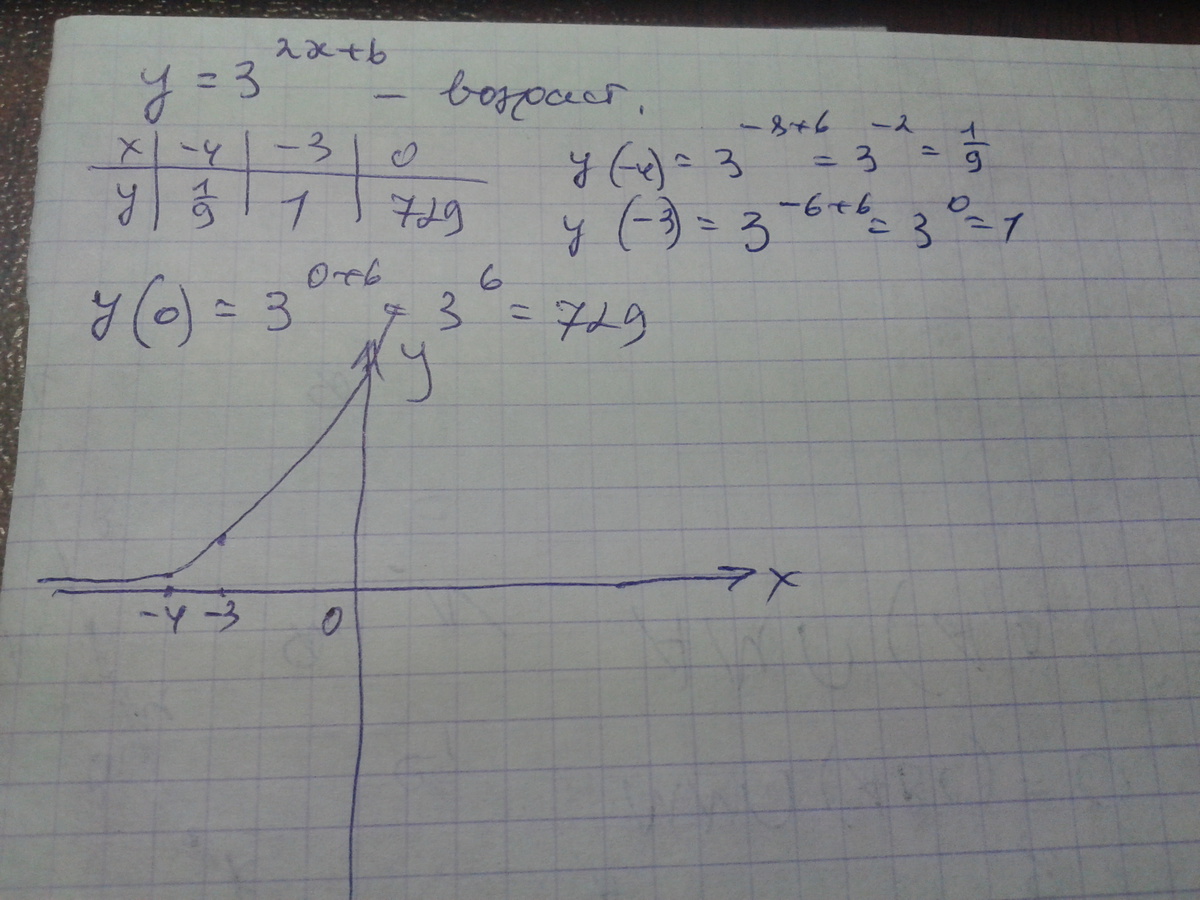 y = 3^{2x+6} – возраст.
x | -4 | -3 | 0
y | 1/9 | 1 | 729
y(-4) = 3^{-8+6} = 3^{-2} = 1/9
y(-3) = 3^{-6+6} = 3^0 = 1
y(0) = 3^{0+6} = 3^6 = 729
y
x
-4 -3 0